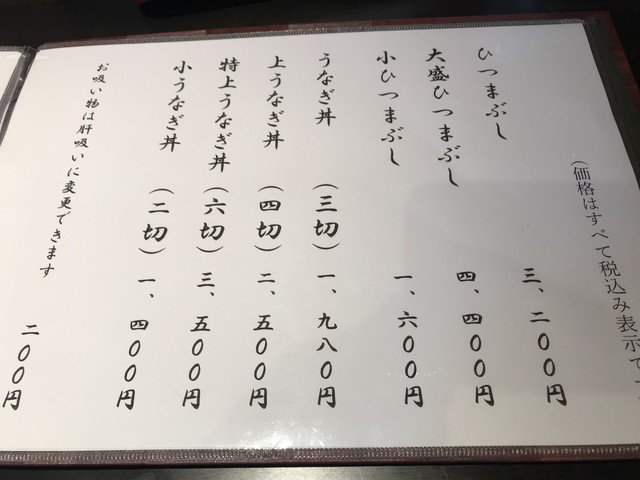 (価格はすべて税込み表示で
ひつまぶし 三、二〇〇円
大盛ひつまぶし 四、四〇〇円
小ひつまぶし 一、六〇〇円
うなぎ丼 (三切) 一、九八〇円
上うなぎ丼 (四切) 二、五〇〇円
特上うなぎ丼 (六切) 三、五〇〇円
小うなぎ丼 (二切) 一、四〇〇円
お吸い物は肝吸いに変更できます 二〇〇円